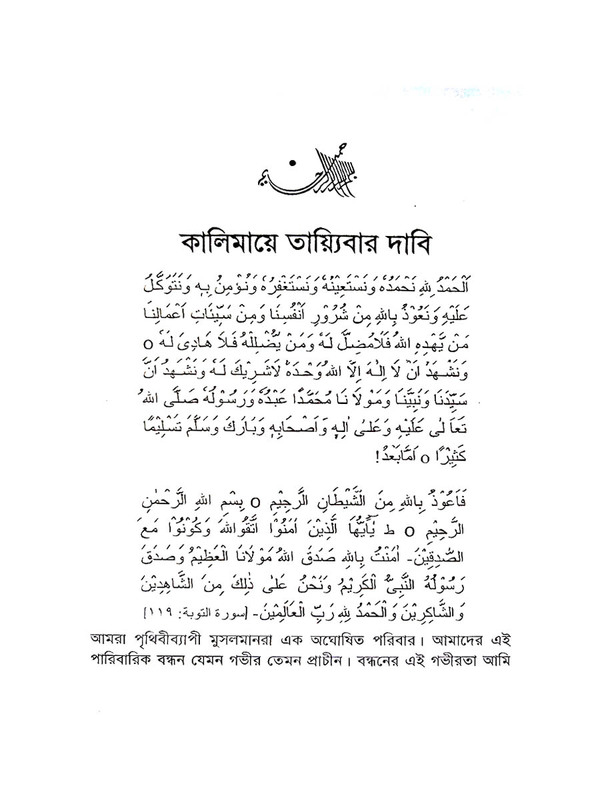 কালিমায়ে তায়্যিবার দাবি
اَلْحَمْدُ لِلّٰهِ نَحْمَدُهٗ وَنَسْتَعِيْنُهٗ وَنَسْتَغْفِرُهٗ وَنُؤْمِنُ بِهٖ وَنَتَوَكَّلُ
عَلَيْهِ وَنَعُوْذُ بِاللّٰهِ مِنْ شُرُوْرِ اَنْفُسِنَا وَمِنْ سَيِّئَاتِ اَعْمَالِنَا
مَنْ يَّهْدِهِ اللّٰهُ فَلَامُضِلَّ لَهٗ وَمَنْ يُّضْلِلْهُ فَلَا هَادِىَ لَهٗ o
وَنَشْهَدُ اَنْ لَا اِلٰهَ اِلَّا اللّٰهُ وَحْدَهٗ لَاشَرِيْكَ لَهٗ وَنَشْهَدُ اَنَّ
سَيِّدَنَا وَنَبِيَّنَا وَمَوْلَا نَا مُحَمَّدًا عَبْدُهٗ وَرَسُوْلُهٗ صَلَّى اللّٰهُ
تَعَا لٰى عَلَيْهِ وَعَلٰى اٰلِهٖ وَاَصْحَابِهٖ وَبَارَكَ وَسَلَّمَ تَسْلِيْمًا
كَثِيْرًا o اَمَّابَعْدُ!
فَاَعُوْذُ بِاللّٰهِ مِنَ الشَّيْطَانِ الرَّجِيْمِ o بِسْمِ اللّٰهِ الرَّحْمٰنِ
الرَّحِيْمِ o ط يٰٓاَيُّهَا الَّذِيْنَ اٰمَنُوْا اتَّقُوااللّٰهَ وَكُوْنُوْا مَعَ
الصّٰدِقِيْنَ- اٰمَنْتُ بِاللّٰهِ صَدَقَ اللّٰهُ مَوْلَانَا الْعَظِيْمُ وَصَدَقَ
رَسُوْلُهُ النَّبِىُّ الْكَرِيْمُ وَنَحْنُ عَلٰى ذٰلِكَ مِنَ الشَّاهِدِيْنَ
وَالشَّاكِرِيْنَ وَالْحَمْدُ لِلّٰهِ رَبِّ الْعَالَمِيْنَ- [سورة التوبة: ١١٩]
আমরা পৃথিবীব্যাপী মুসলমানরা এক অঘোষিত পরিবার। আমাদের এই
পারিবারিক বন্ধন যেমন গভীর তেমন প্রাচীন। বন্ধনের এই গভীরতা আমি